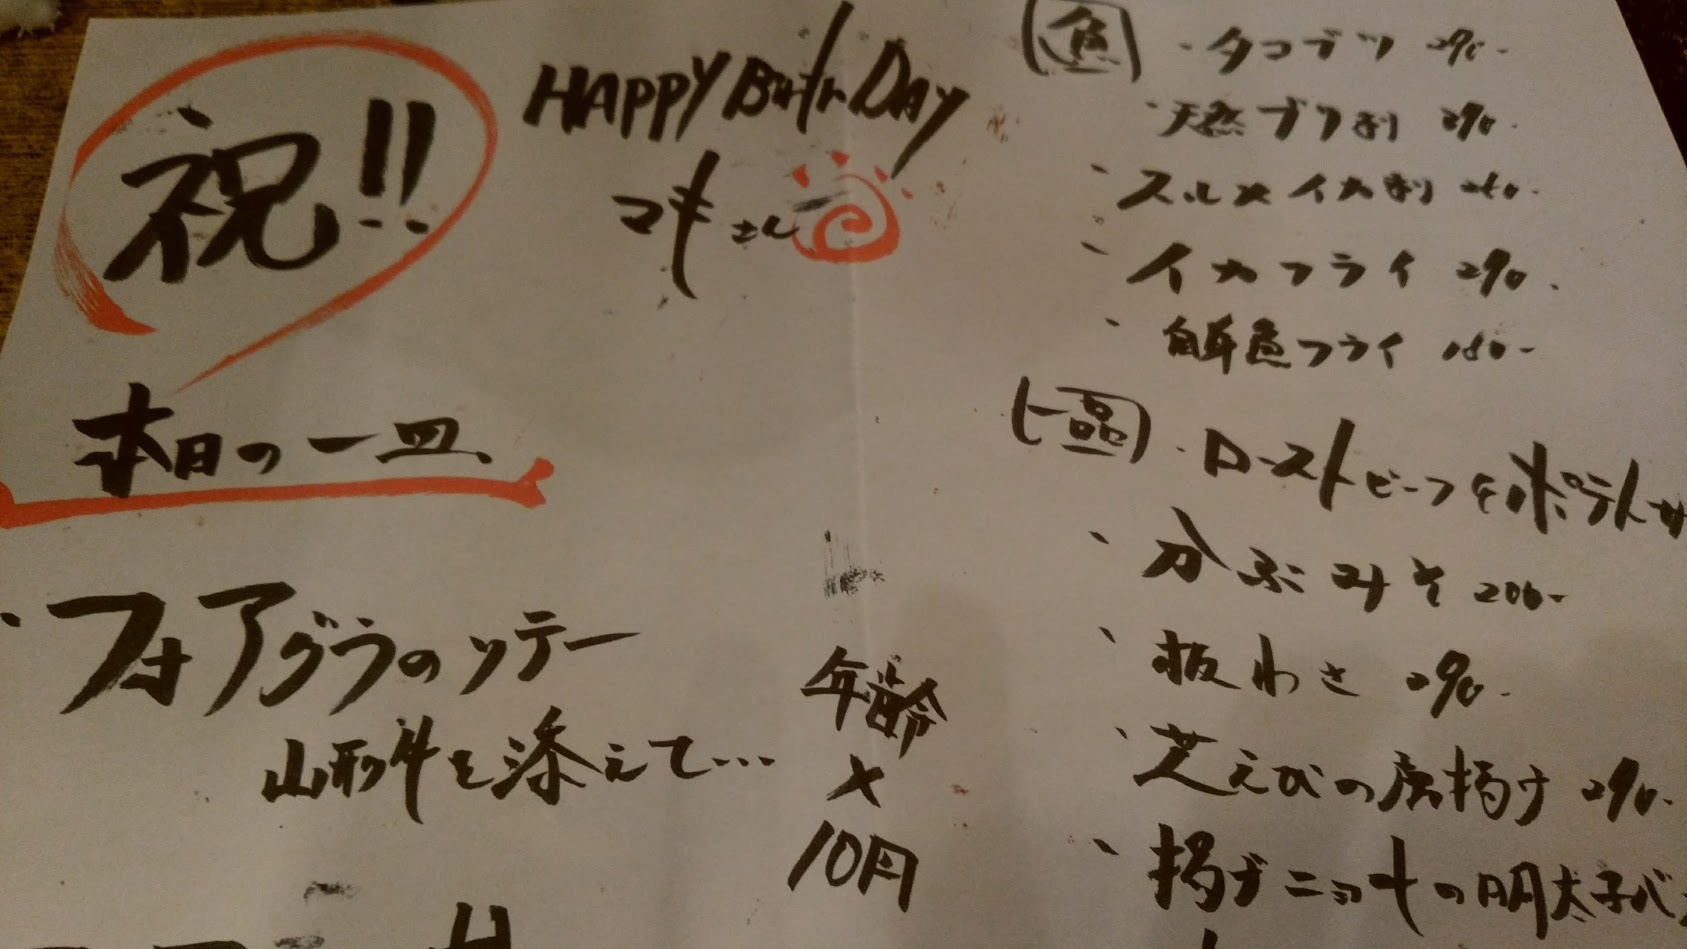 祝!!
HAPPY BirthDAY
マキさん
本日の一皿
・フォアグラのソテー
山形牛を添えて…
年齢
×
10円
魚
・タコブツ 290-
・天然ブリ刺 290-
・スルメイカ刺
・イカフライ 290-
・自家製魚フライ 180-
一品
・ローストビーフ ポテトサ
・かぶみそ 200-
・板わさ 290-
・芝えびの唐揚げ 290-
・揚げニョッキの明太子バ